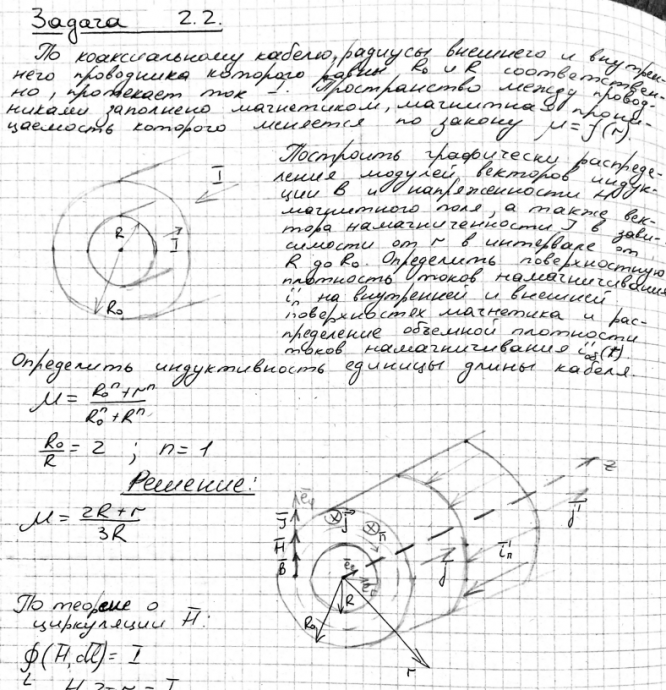 Задача 2.2.
По коаксиальному кабелю, радиусы внешнего и внутрен-
него проводника которого равны R₀ и R соответствен-
но, протекает ток I. Пространство между провод-
никами заполнено магнетиком, магнитная прони-
цаемость которого меняется по закону μ=f(r).
Построить графически распреде-
ления модулей векторов индук-
ции B и напряженности H
магнитного поля, а также век-
тора намагниченности J в зави-
симости от r в интервале от
R до R₀. Определить поверхностную
плотность токов намагничивания
i'п на внутренней и внешней
поверхностях магнетика и рас-
пределение объемной плотности
токов намагничивания i'об(r).
Определить индуктивность единицы длины кабеля.
I
R
I
R₀
μ = (R₀ⁿ + rⁿ)/(R₀ⁿ + Rⁿ)
R₀/R = 2 ; n = 1
Решение:
μ = (2R + r)/(3R)
По теореме о
циркуляции H̄:
∮(H̄, dl̄) = I
L
H 2πr = I
J̄
H̄
B̄
n̄
R
R₀
r
z
j̄
ī'п
j̄'